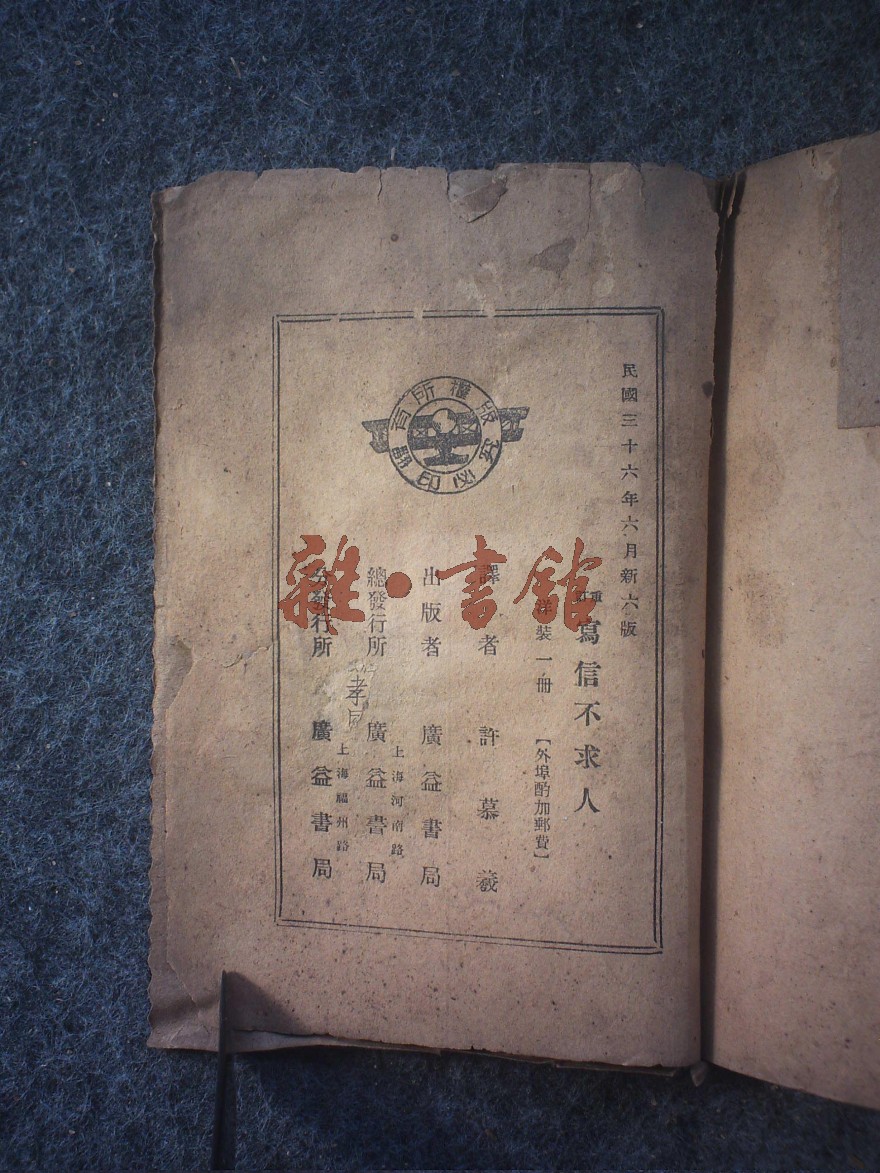 民國三十六年六月新六版
重訂 寫信不求人
洋裝一冊 【外埠酌加郵費】
譯者 許慕羲
出版者 廣益書局
總發行所 上海河南路 廣益書局
分發行所 上海福州路 廣益書局
版權所有
翻印必究
雜·書館
孝